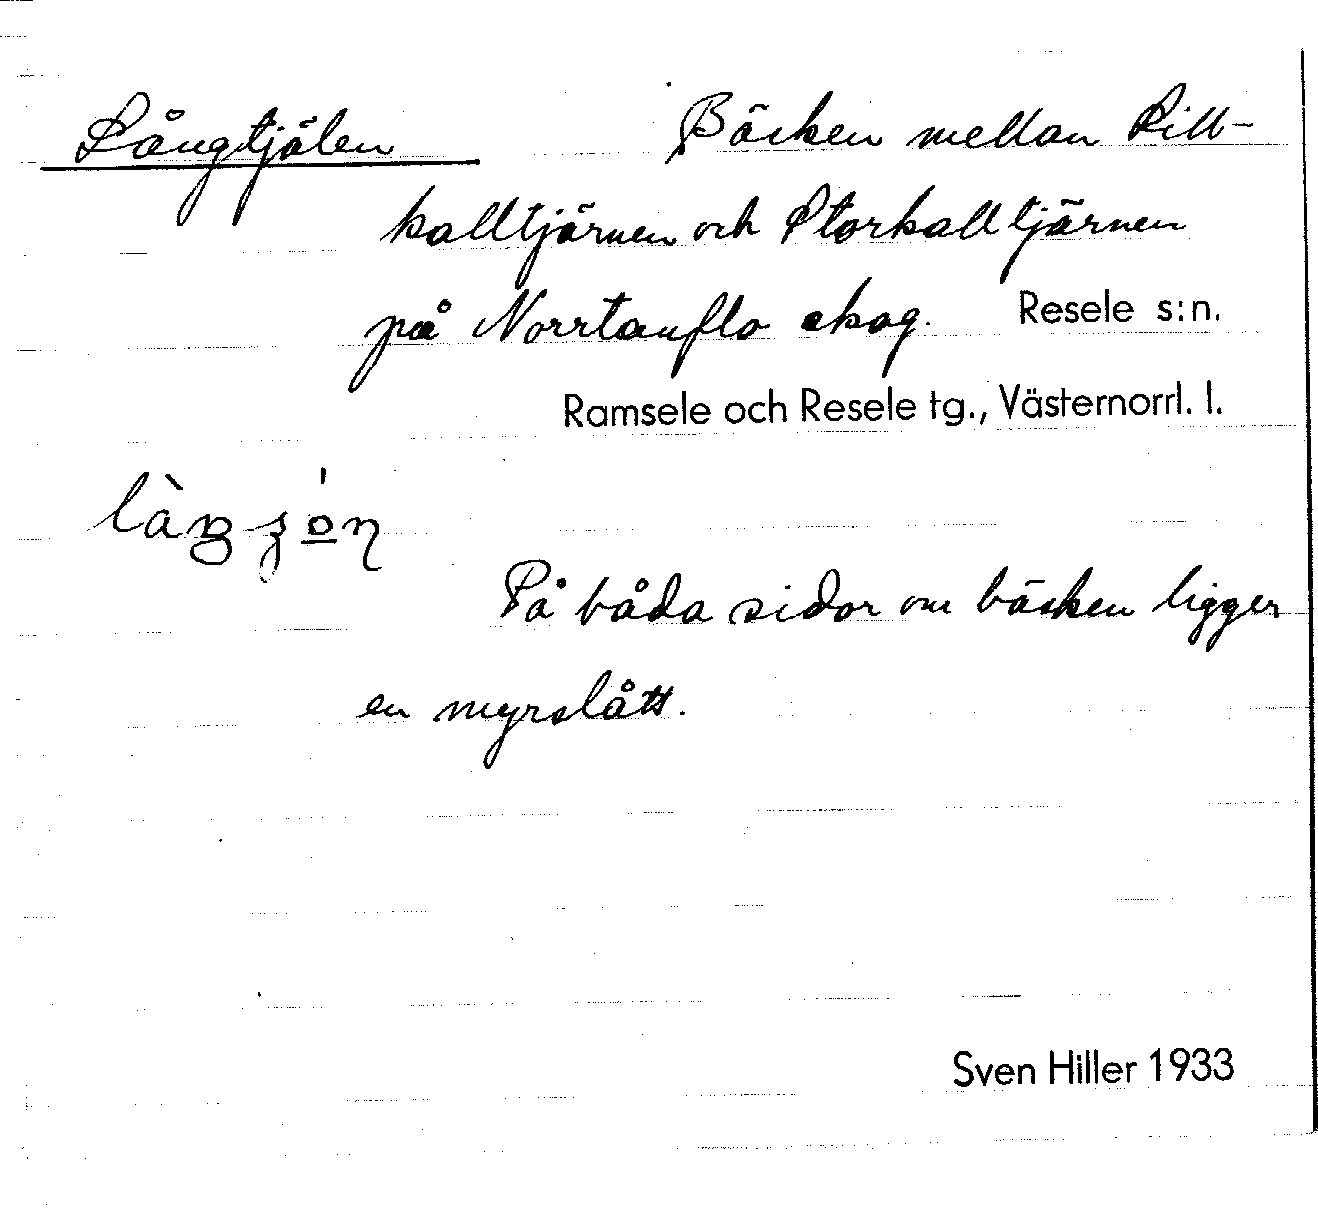 Långtjälen Bäcken mellan Lill-
kalltjärnen och Storkalltjärnen
på Norrtanflo skog. Resele s:n.
Ramsele och Resele tg., Västernorrl. l.
På båda sidor om bäcken ligger
en myrslått.
Sven Hiller 1933